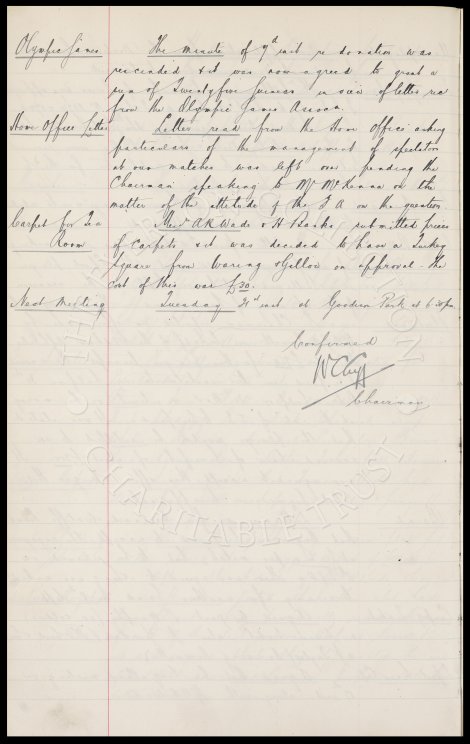 Olympic Games The minute of 7th inst re donation was
rescinded & it was now agreed to grant a
sum of Twentyfive Guineas in view of letter rec
from the Olympic Games Assoca.
Home Office Letter Letter read from the Home Office asking
particulars of the management of spectators
at our matches was left over pending the
Chairman speaking to Mr McKenna on the
matter of the attitude of the F A on the question.
Carpet for Tea Messrs A R Wade & H Banks submitted prices
Room of carpets & it was decided to have a Turkey
Square from Waring & Gillow on approval. the
cost of this was £30.
Next Meeting Tuesday 21st inst at Goodison Park at 6.30pm.
Confirmed
W C Cuff
Chairman
CHARITABLE TRUST